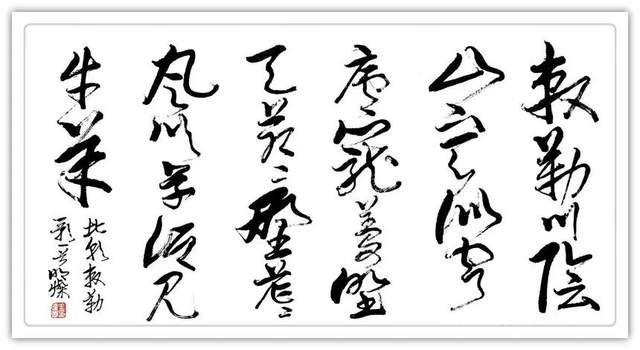 敕勒川陰
山下天似穹
廬籠蓋四野
天蒼〻野茫〻
風吹草低見
牛羊
北朝敕勒
歌